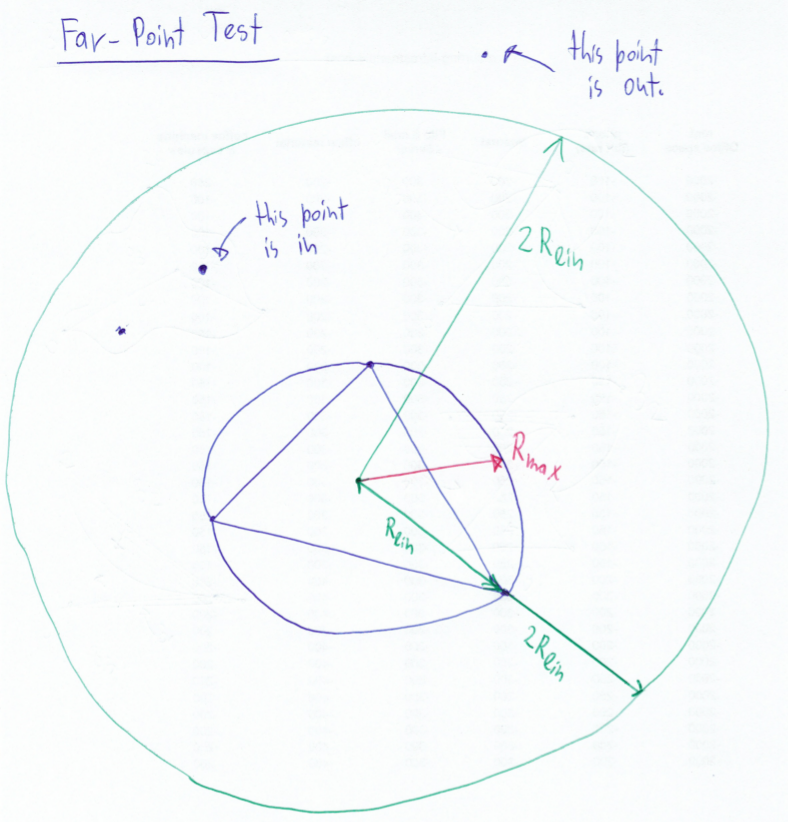 Far-Point Test
this point
is out.
this point
is in
2Rlin
Rmax
Rlin
2Rlin